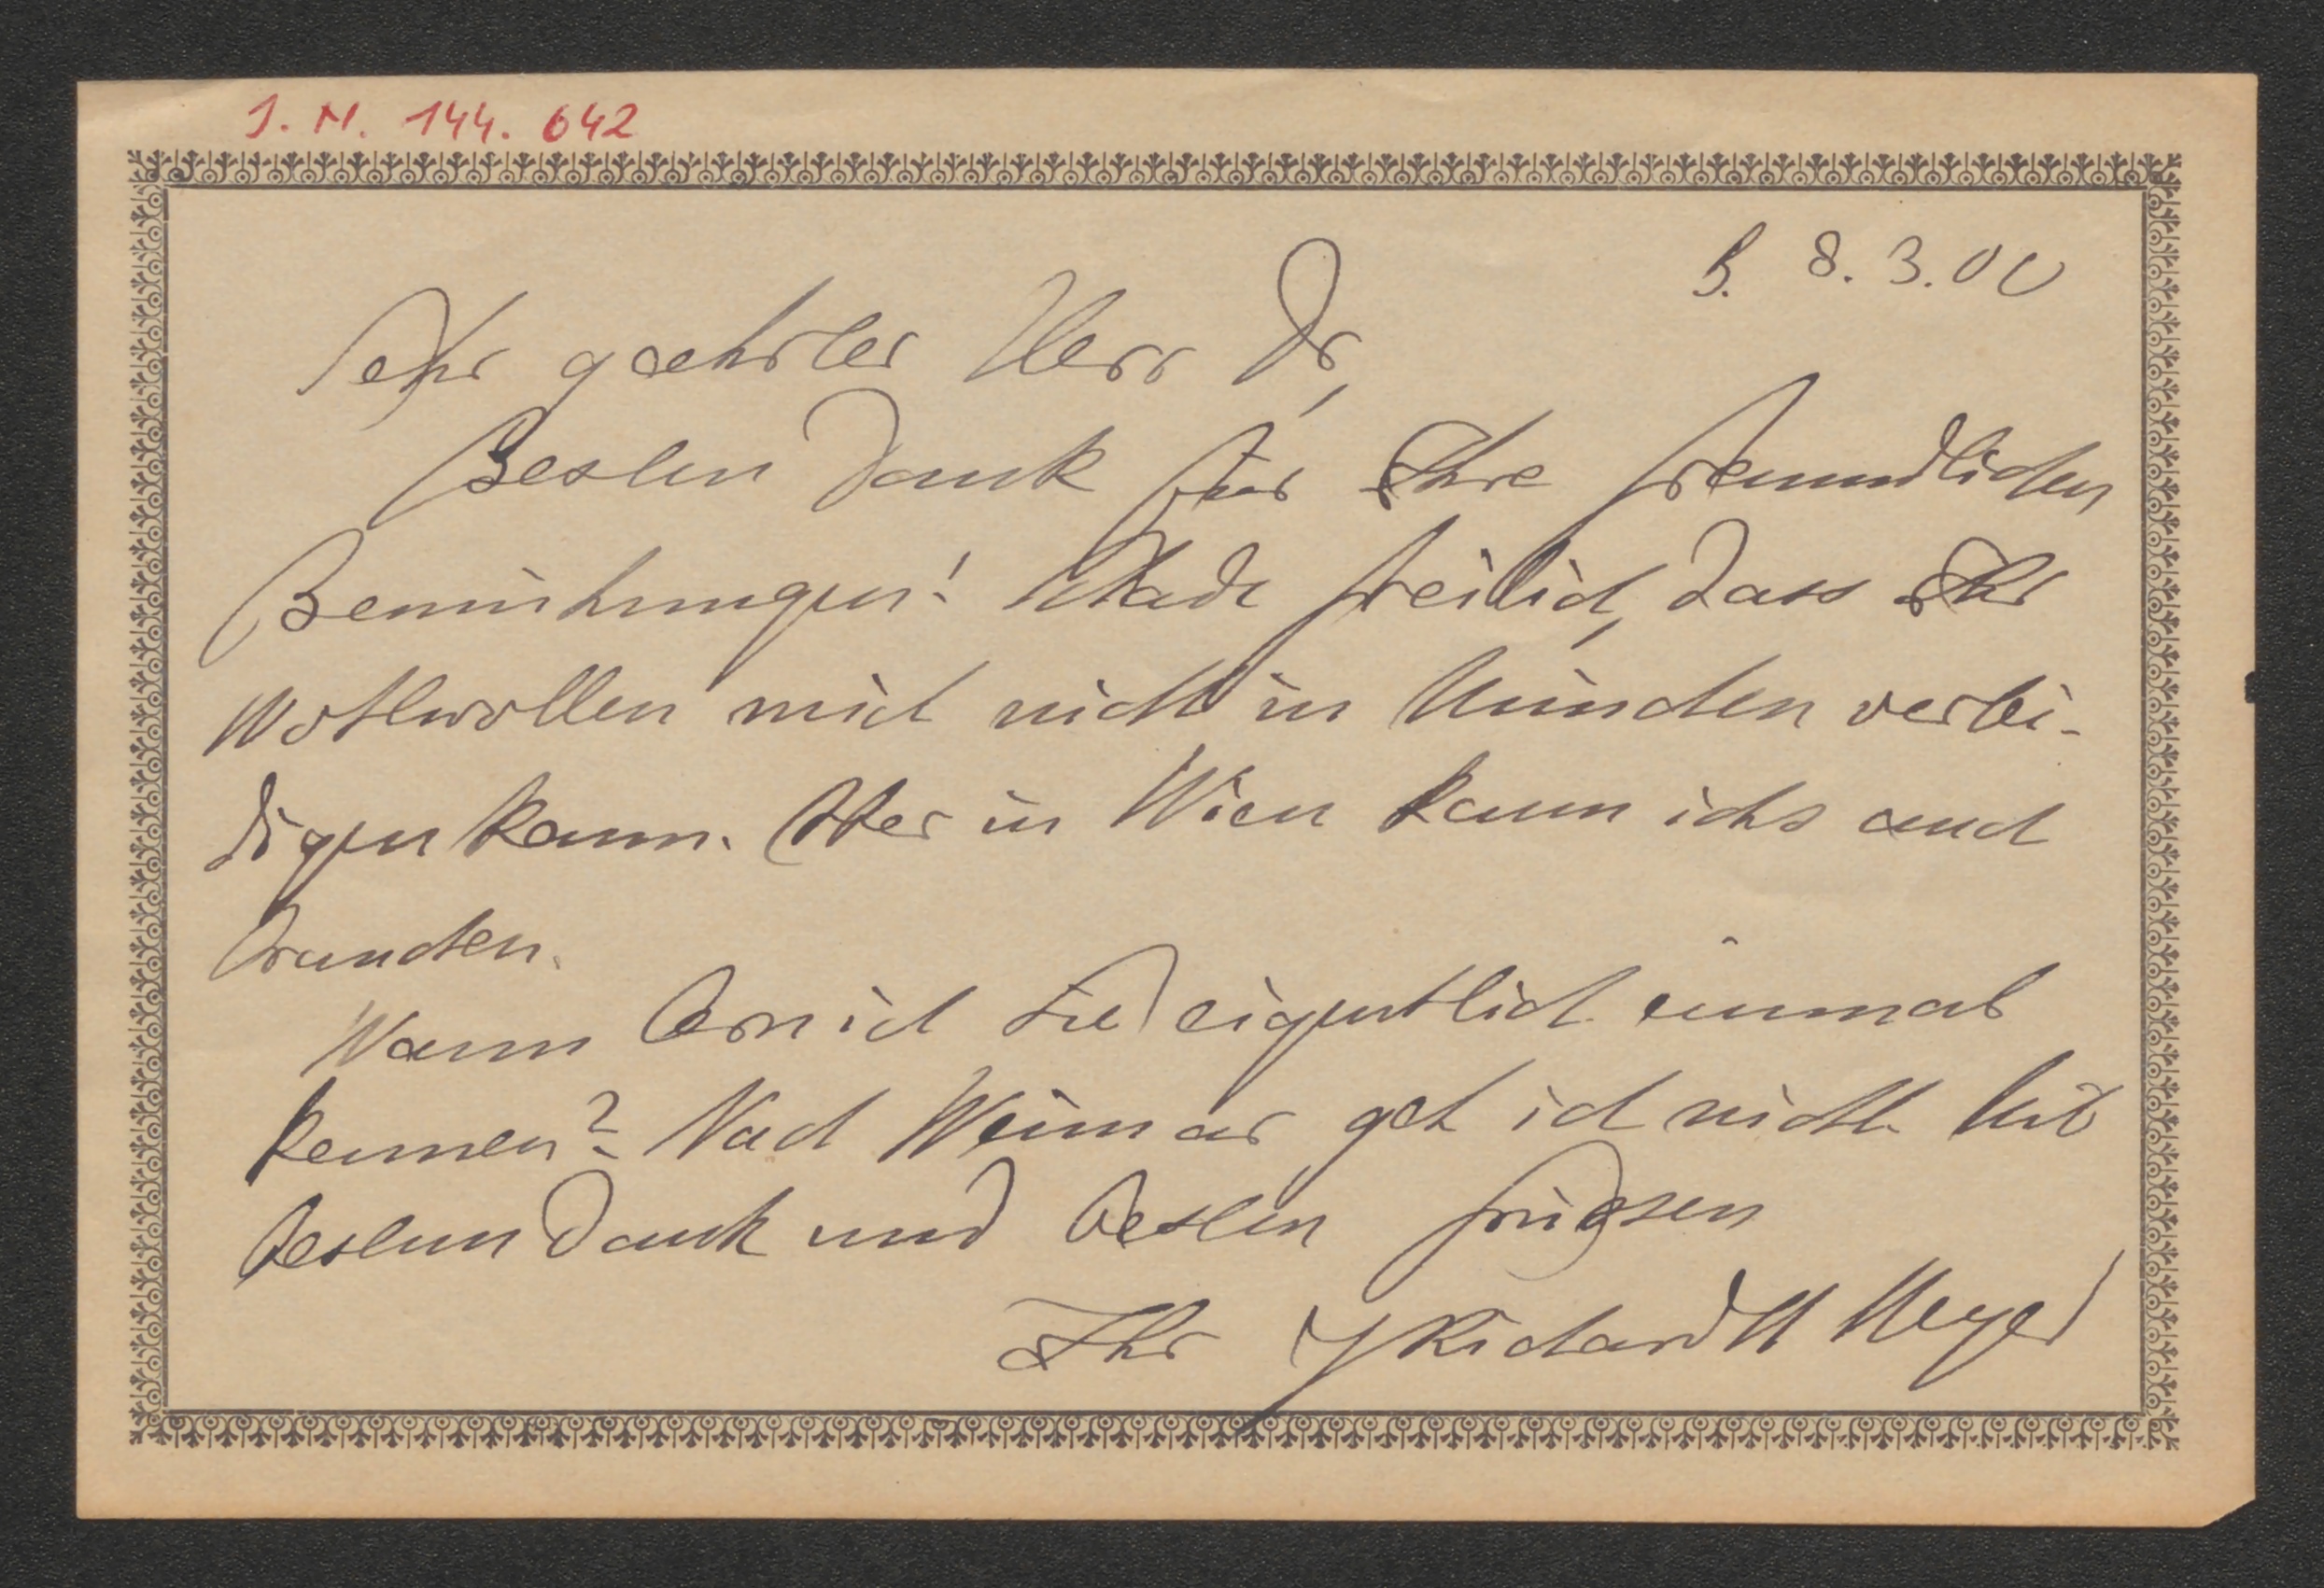 J. N. 144.642
B. 8.3.00
Sehr geehrter Herr Dr,
Besten Dank für Ihre freundlichen
Bemühungen! Schade freilich, dass Ihr
Wohlwollen mich nicht in München vertei-
digen kann. Aber in Wien kann ichs auch
brauchen.
Wann lern ich Sie eigentlich einmal
kennen? Nach Weimar geh ich nicht. Mit
bestem Dank und besten Grüßen
Ihr Richard M Meyer